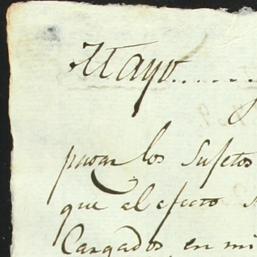 Mayo......
pasar los Sujetos
que al efecto
Cargados, en mi